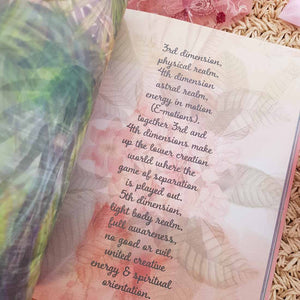 3rd dimension,
physical realm.
4th dimension
astral realm,
energy in motion.
(E-motions),
together 3rd and
4th dimensions make
up the lower creation
world where the
game of separation
is played out.
5th dimension,
light body realm.
full awareness,
no good or evil,
united creative
energy & spiritual
orientation.